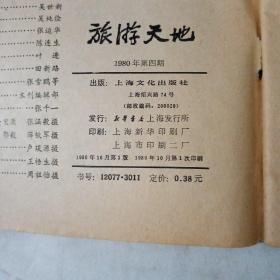 吴世新
张延华
陈连生
叶进
田新路
张雪鸥等
本刊编辑部
张千一
张涵毅摄
薛教军摄
卢瑛源摄
王悟生摄
周祖怡摄
旅游天地
1980年第四期
出版：上海文化出版社
上海绍兴路74号
(邮政编码：200020)
发行：新华书店上海发行所
印刷：上海新华印刷厂
上海市印刷二厂
1980年10月第1版 1980年10月第1次印刷
书号：12077·3011 定价：0.38元